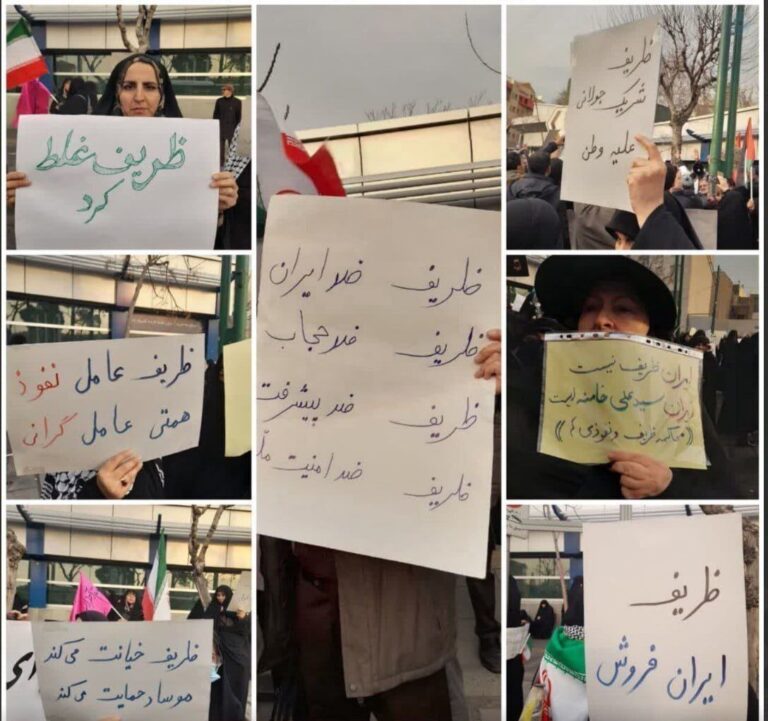 ظریف غلط
کرد
ظریف عامل نفوذ
همتی عامل گرانی
ظریف خیانت می‌کند
موساد حمایت می‌کند
ظریف ضد ایران
ظریف ضد حجاب
ظریف ضد پیشرفت
ظریف ضد امنیت
ظریف
شریک جولانی
علیه وطن
ایران ظریف نیست
ایران سید علی خامنه ایست
((محاکمه ظریف و نفوذی
ظریف
ایران فروش